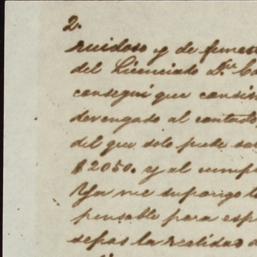 2.
ruidoso y de funest
del Licenciado Dn. Ca
conseguí que consin
devengado al contado
del que solo pude sa
$2050. y al cump
Ya me supongo l
pensable para esp
sepas la realidad d